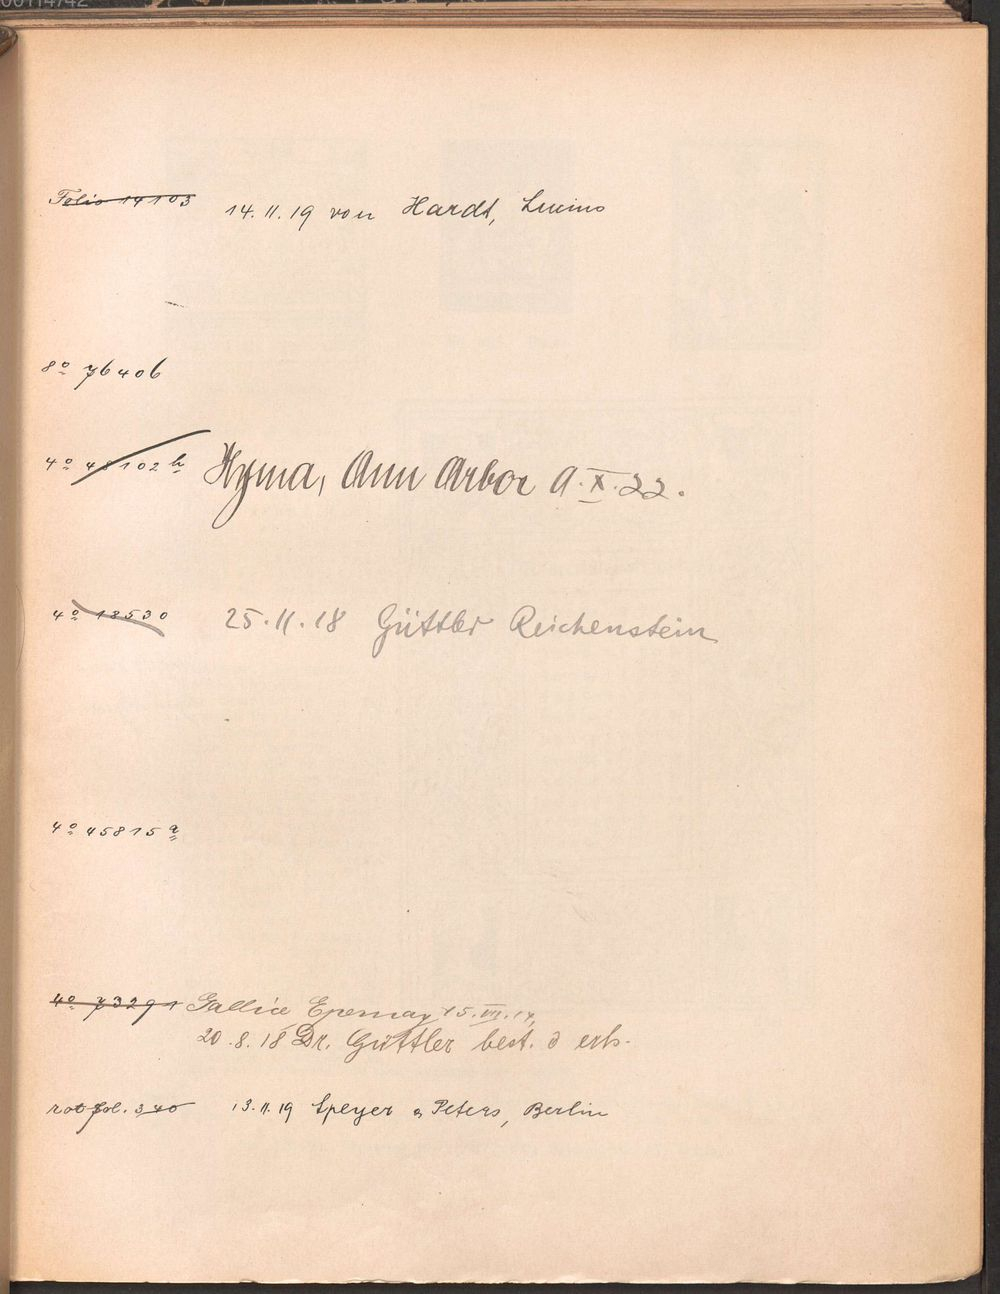 Folio 14103 14. 11. 19 von Hardt, Lucino
8º 76406
4º 48102 b Hyma, Ann Arbor 9.X.22.
4º 18530 25.11.18 Güttler Reichenstein
4º 45815 a
4º 73291 Gallice Epernay 15.VII.14,
20.8.18 Dr. Güttler best. d erh.
rot fol. 340 13.11.19 Speyer & Peters, Berlin